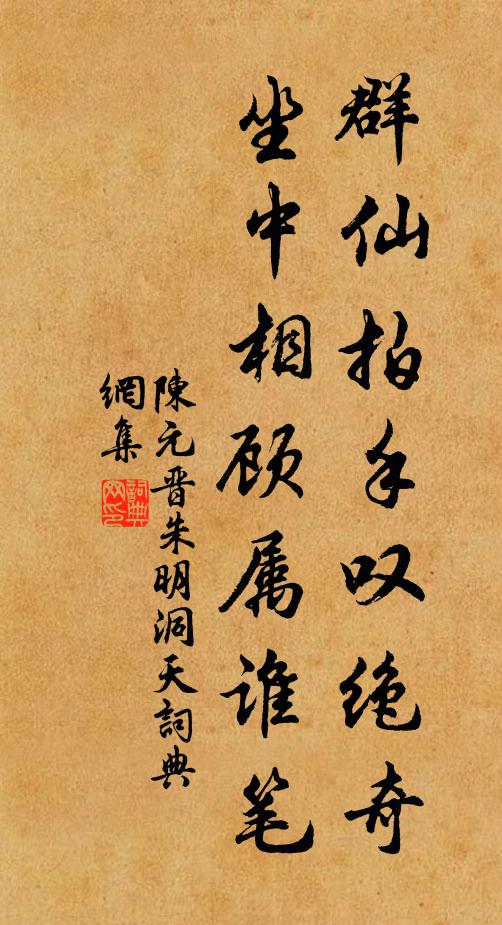 群仙拍手叹绝奇
坐中相顾属谁笔
陳元晋朱明洞天詞典
網集
詞典
网印